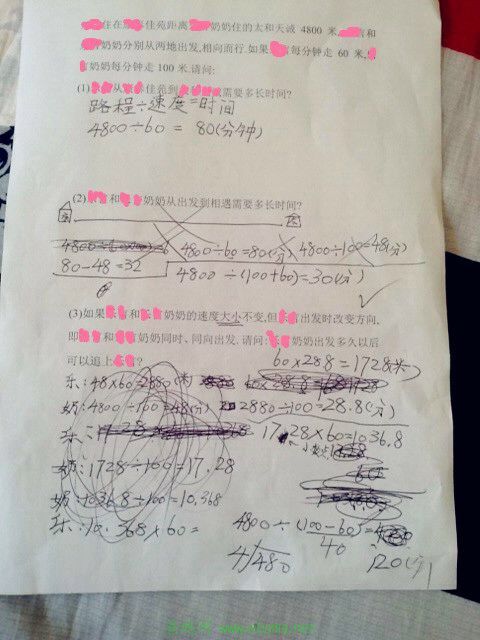 住在 佳苑距离 奶奶住的太和天诚 4800 米 和
奶奶分别从两地出发,相向而行.如果 每分钟走 60 米,
奶奶每分钟走 100 米.请问:
(1) 从 佳苑到 需要多长时间?
路程÷速度=时间
4800÷60 = 80(分钟)
(2) 和 奶奶从出发到相遇需要多长时间?
家
4800÷60=80(分) 4800÷100=48(分)
80-48=32
4800 ÷(100+60)=30(分)
(3)如果 和 奶奶的速度大小不变,但 出发时改变方向,
即 和 奶奶同时、同向出发, 请问: 奶奶出发多久以后
可以追上 ?
60×28.8=1728(米)
乐:48×60=2880(米)
奶:4800÷100=48(分) 2880÷100=28.8(分)
17.28×60=1036.8
小数点
奶:1728÷100=17.28
60
奶:1036.8÷100=10.368
乐:10.368×60=
4800÷(100-60)=
40
4 480
120(分)